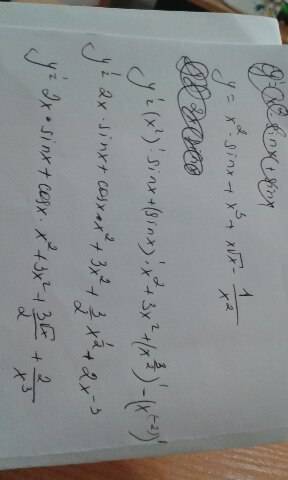 y = x² · sinx + x³ + x√x - 1/x²
y' = (x²)' sinx + (sinx)' · x² + 3x² + (x^(3/2))' - (x^(-2))'
y' = 2x · sinx + cosx · x² + 3x² + 3/2 x^(1/2) + 2x^-3
y' = 2x · sinx + cosx · x² + 3x² + 3√x/2 + 2/x³